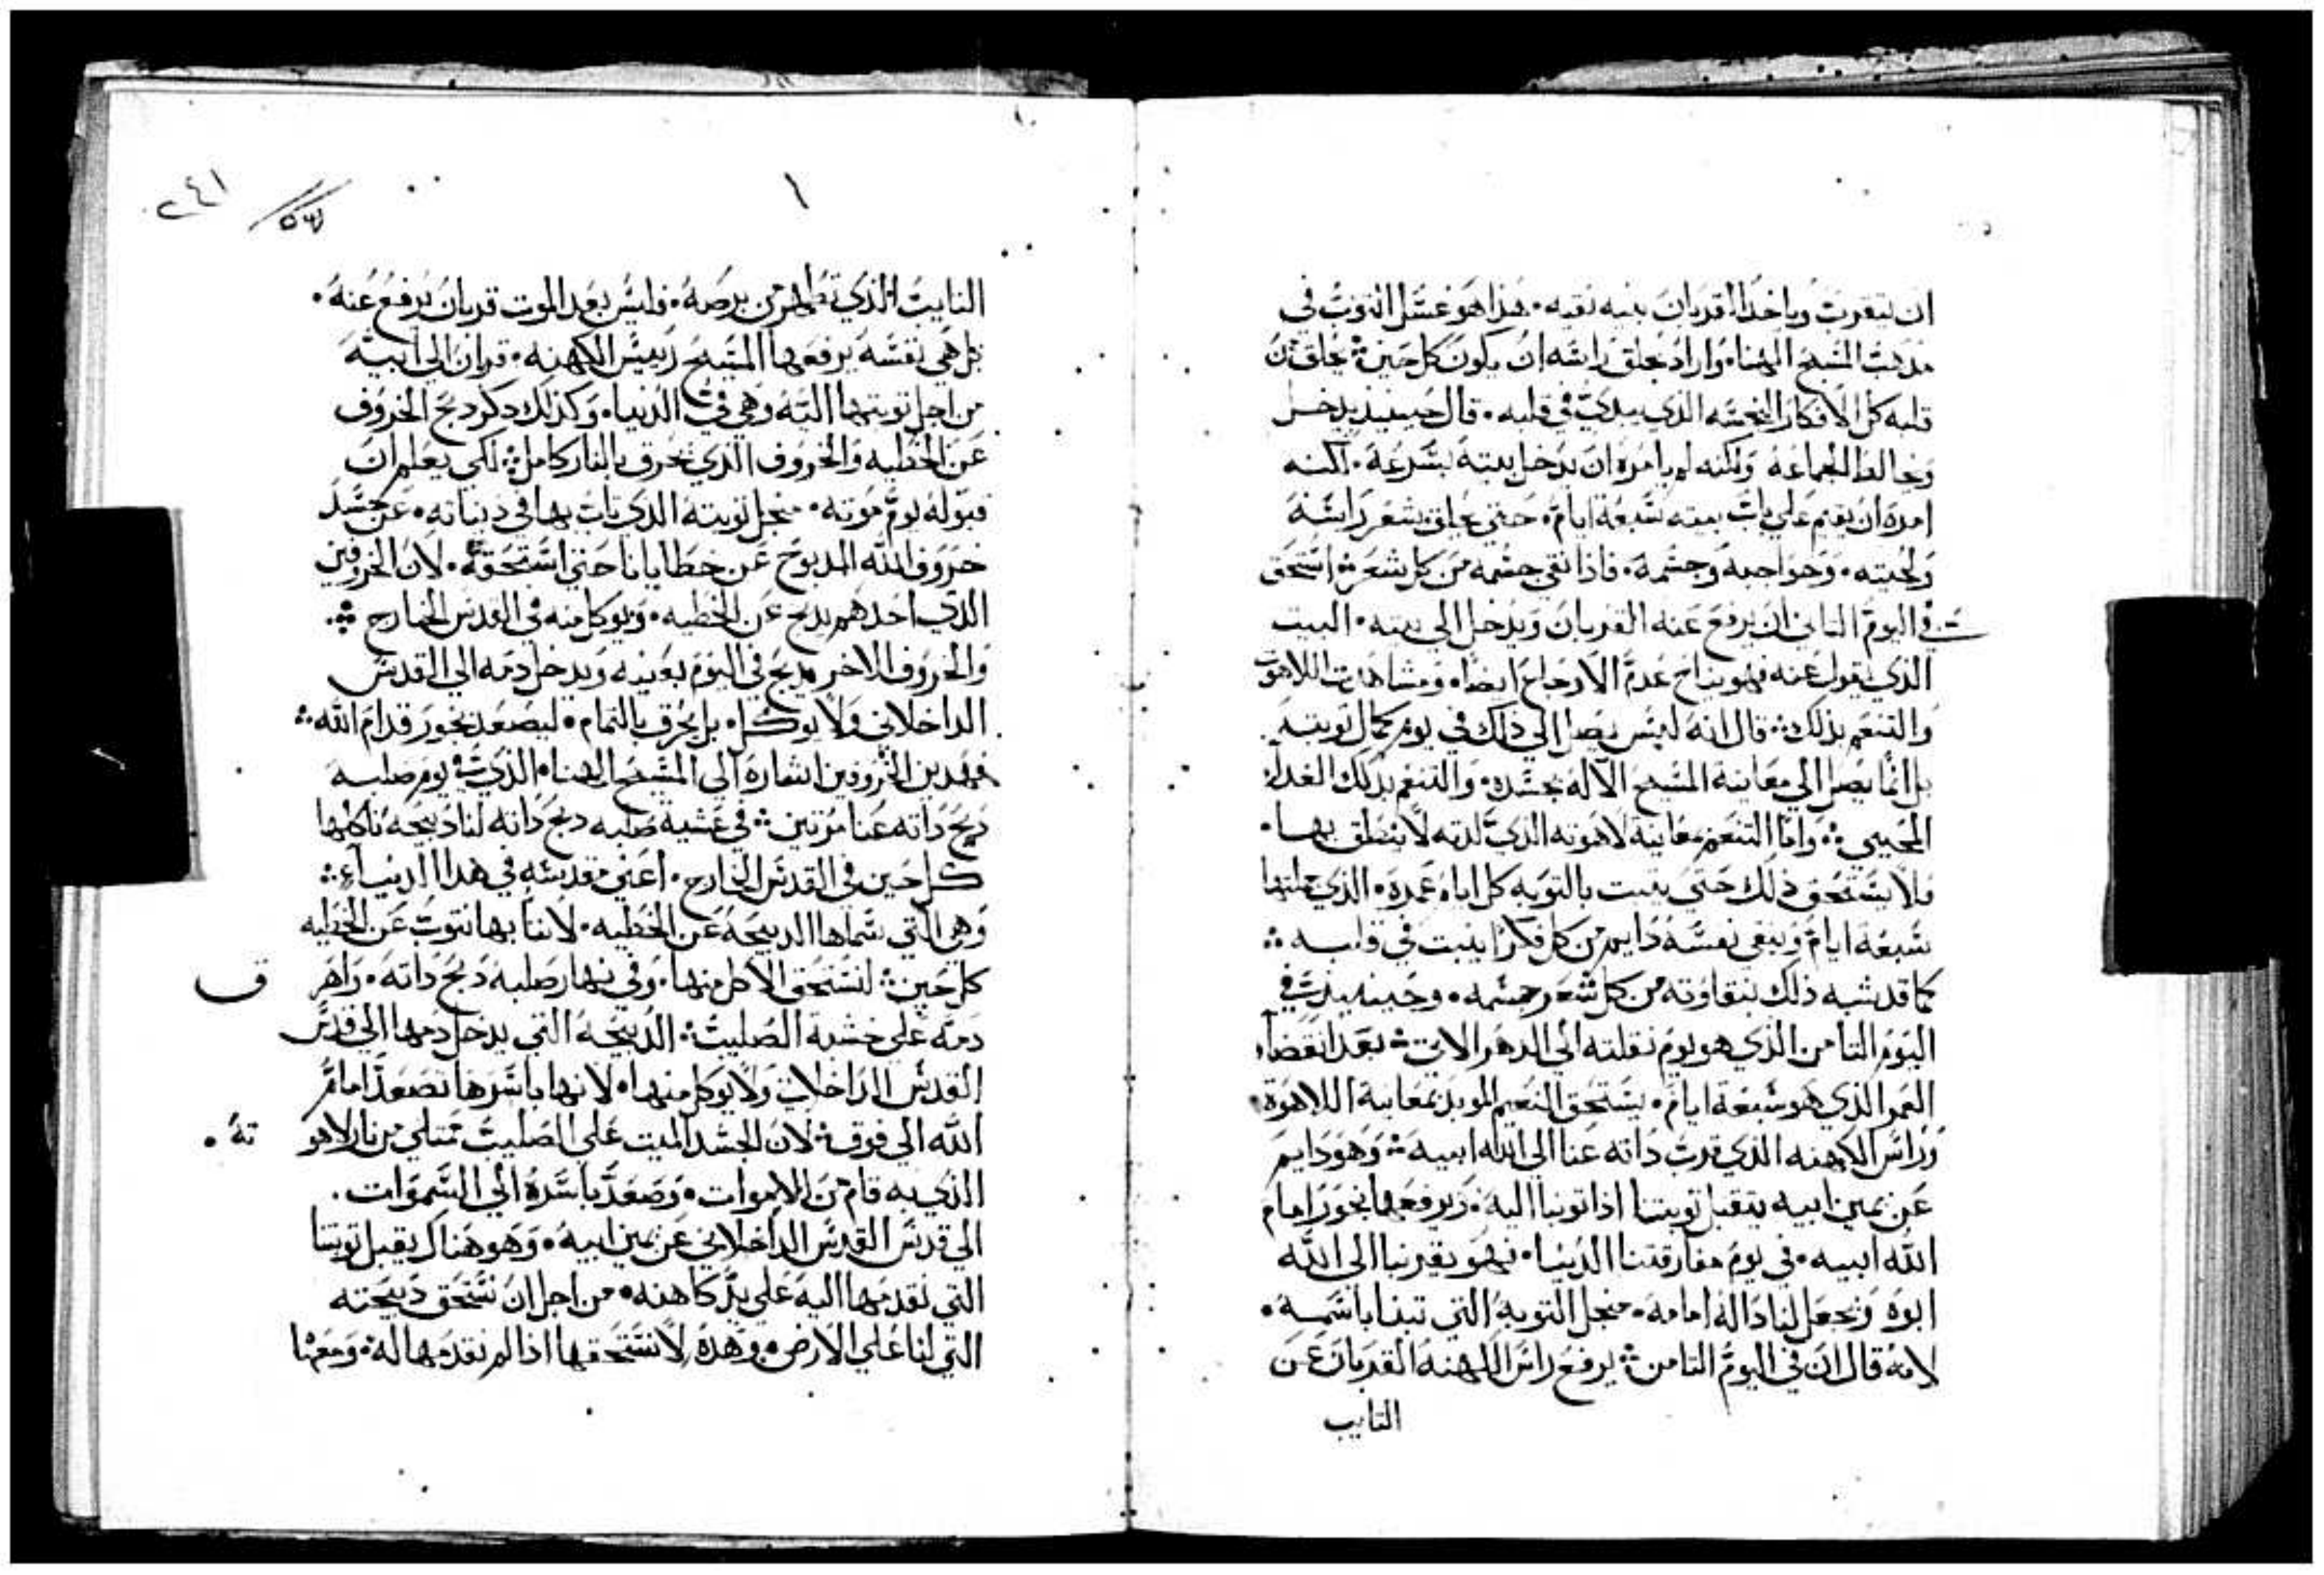 ان يتقرب وياخد القربان بنيه نقيه۰ هذا هو غسل التوب في
مدهب المسيح الهنا۰ واراد بحلق راسه ان يكون كل حين يحلق من
قلبه كل الافكار النجسه الذي يبدي في قلبه۰ قال حينيذ يدخل
ويخالط الجماعه ولكنه لم يامره ان يدخل بيته بسرعة۰ لكنه
امره ان يقيم علي باب بيته سبعة ايام۰ حتي يحلق شعر راسه
ولحيته۰ وحواجبه وجسمه۰ فاذا نقي جسمه من كل شعر استحق
في اليوم التامن ان يرفع عنه القربان ويدخل الي بيته۰ البيت
الذي يقول عنه فهو نياح عدم الاوجاع ايضا۰ ومشاهدت اللاهوت
والتنعم بذلك قال انه ليس يصل الي ذلك في يوم كمال توبته
بل انما يصل الي معاينة المسيح الاله بجسده۰ والتنعم بدلك الغدا
المحيي واما التنعم بمعاينة لاهوته الذي لدته لا ينطق بها۰
ولا يستحق ذلك حتي يتبت بالتوبه كل ايام عمره۰ الذي جملتها
سبعة ايام وينقي نفسه دايم من كل فكر ينبت في قلبه
كما قد شبه ذلك بنقاوته من كل شعر جسمه۰ وحينيذ في
اليوم التامن الذي هو يوم نقلته الي الدهر الاتي بعد انقضاء
العمر الذي هو سبعة ايام۰ يستحق النعيم الموبد بمعاينة اللاهوة
وراس الكهنه الذي قرب داته عنا الي الله ابيه وهو دايم
عن يمين ابيه يتقبل توبتنا اذا توبنا اليه۰ ويرفعها بخور امام
الله ابيه۰ في يوم مفارقتنا الدنيا۰ فهو يقربنا الي الله
ابوه ويجعل لنا دالة امامه۰ منجل التوبه التي تبنا باسمه۰
لانه قال ان في اليوم التامن يرفع راس الكهنه القربان عن
التايب
٢٤١
١
التايب الذي تطهر من برصه۰ فليس بعد الموت قربان يرفع عنه۰
بل هي نفسه يرفعها المسيح رييس الكهنه۰ قربان الي ابيه
من اجل توبتها اليه وهي في الدنيا۰ وكذلك دكر دبح الخروف
عن الخطيه والخروف الذي يحرق بالنار كامل لكي يعلم ان
قبوله يوم موته۰ منجل توبته الذي تاب بها في دنياته۰ عن جسد
خروف الله المدبوح عن خطايانا حتي استحقه۰ لان الخروفين
الذي احدهم يدبح عن الخطيه۰ ويوكل منه في القدس الخارج
والخروف الاخر يدبح في اليوم بعينه ويدخل دمه الي القدس
الداخلاني ولا يوكل۰ بل يحرق بالتمام۰ ليصعد بخور قدام الله
فهدين الخروفين اشارة الي المسيح الهنا۰ الذي في يوم صلبه
دبح داته عنا مرتين في عشية صلبه دبح داته لنا دبيحه ناكلها
كل حين في القدس الخارج۰ اعني مقدسه في هدا الدنيا
وهي التي سماها الدبيحه عن الخطيه۰ لاننا بها نتوب عن الخطيه
كل حين لنستحق الاكل منها۰ وفي نهار صلبه دبح داته۰ واهر ق
دمه علي خشبة الصليب الدبيحه التي يدخل دمها الي قدس
القدس الداخلاني ولا يوكل منها۰ لانها باسرها تصعد امام
الله الي فوق لان الجسد الميت علي الصليب ممتلي من نار لاهو ته۰
الذي به قام من الاموات۰ وصعد باسره الي السموات۰
الي قدس القدس الداخلاني عن يمين ابيه۰ وهو هناك يقبل توبتنا
التي نقدمها اليه علي يد كاهنه۰ من اجل ان نستحق دبيحته
التي لنا علي الارض۰ وهده لا نستحقها اذا لم نقدمها له۰ ومعها